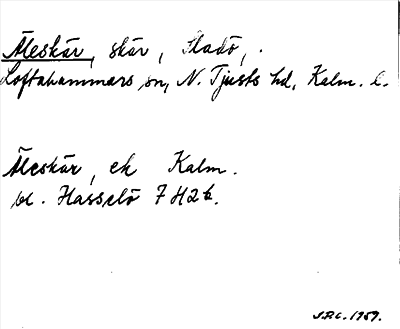 Äleskär, skär, Stadö, .
Loftahammars sn, N. Tjusts hd, Kalm. l.
Äleskär, ek Kalm.
bl. Hasselö 7H2b.
1959.